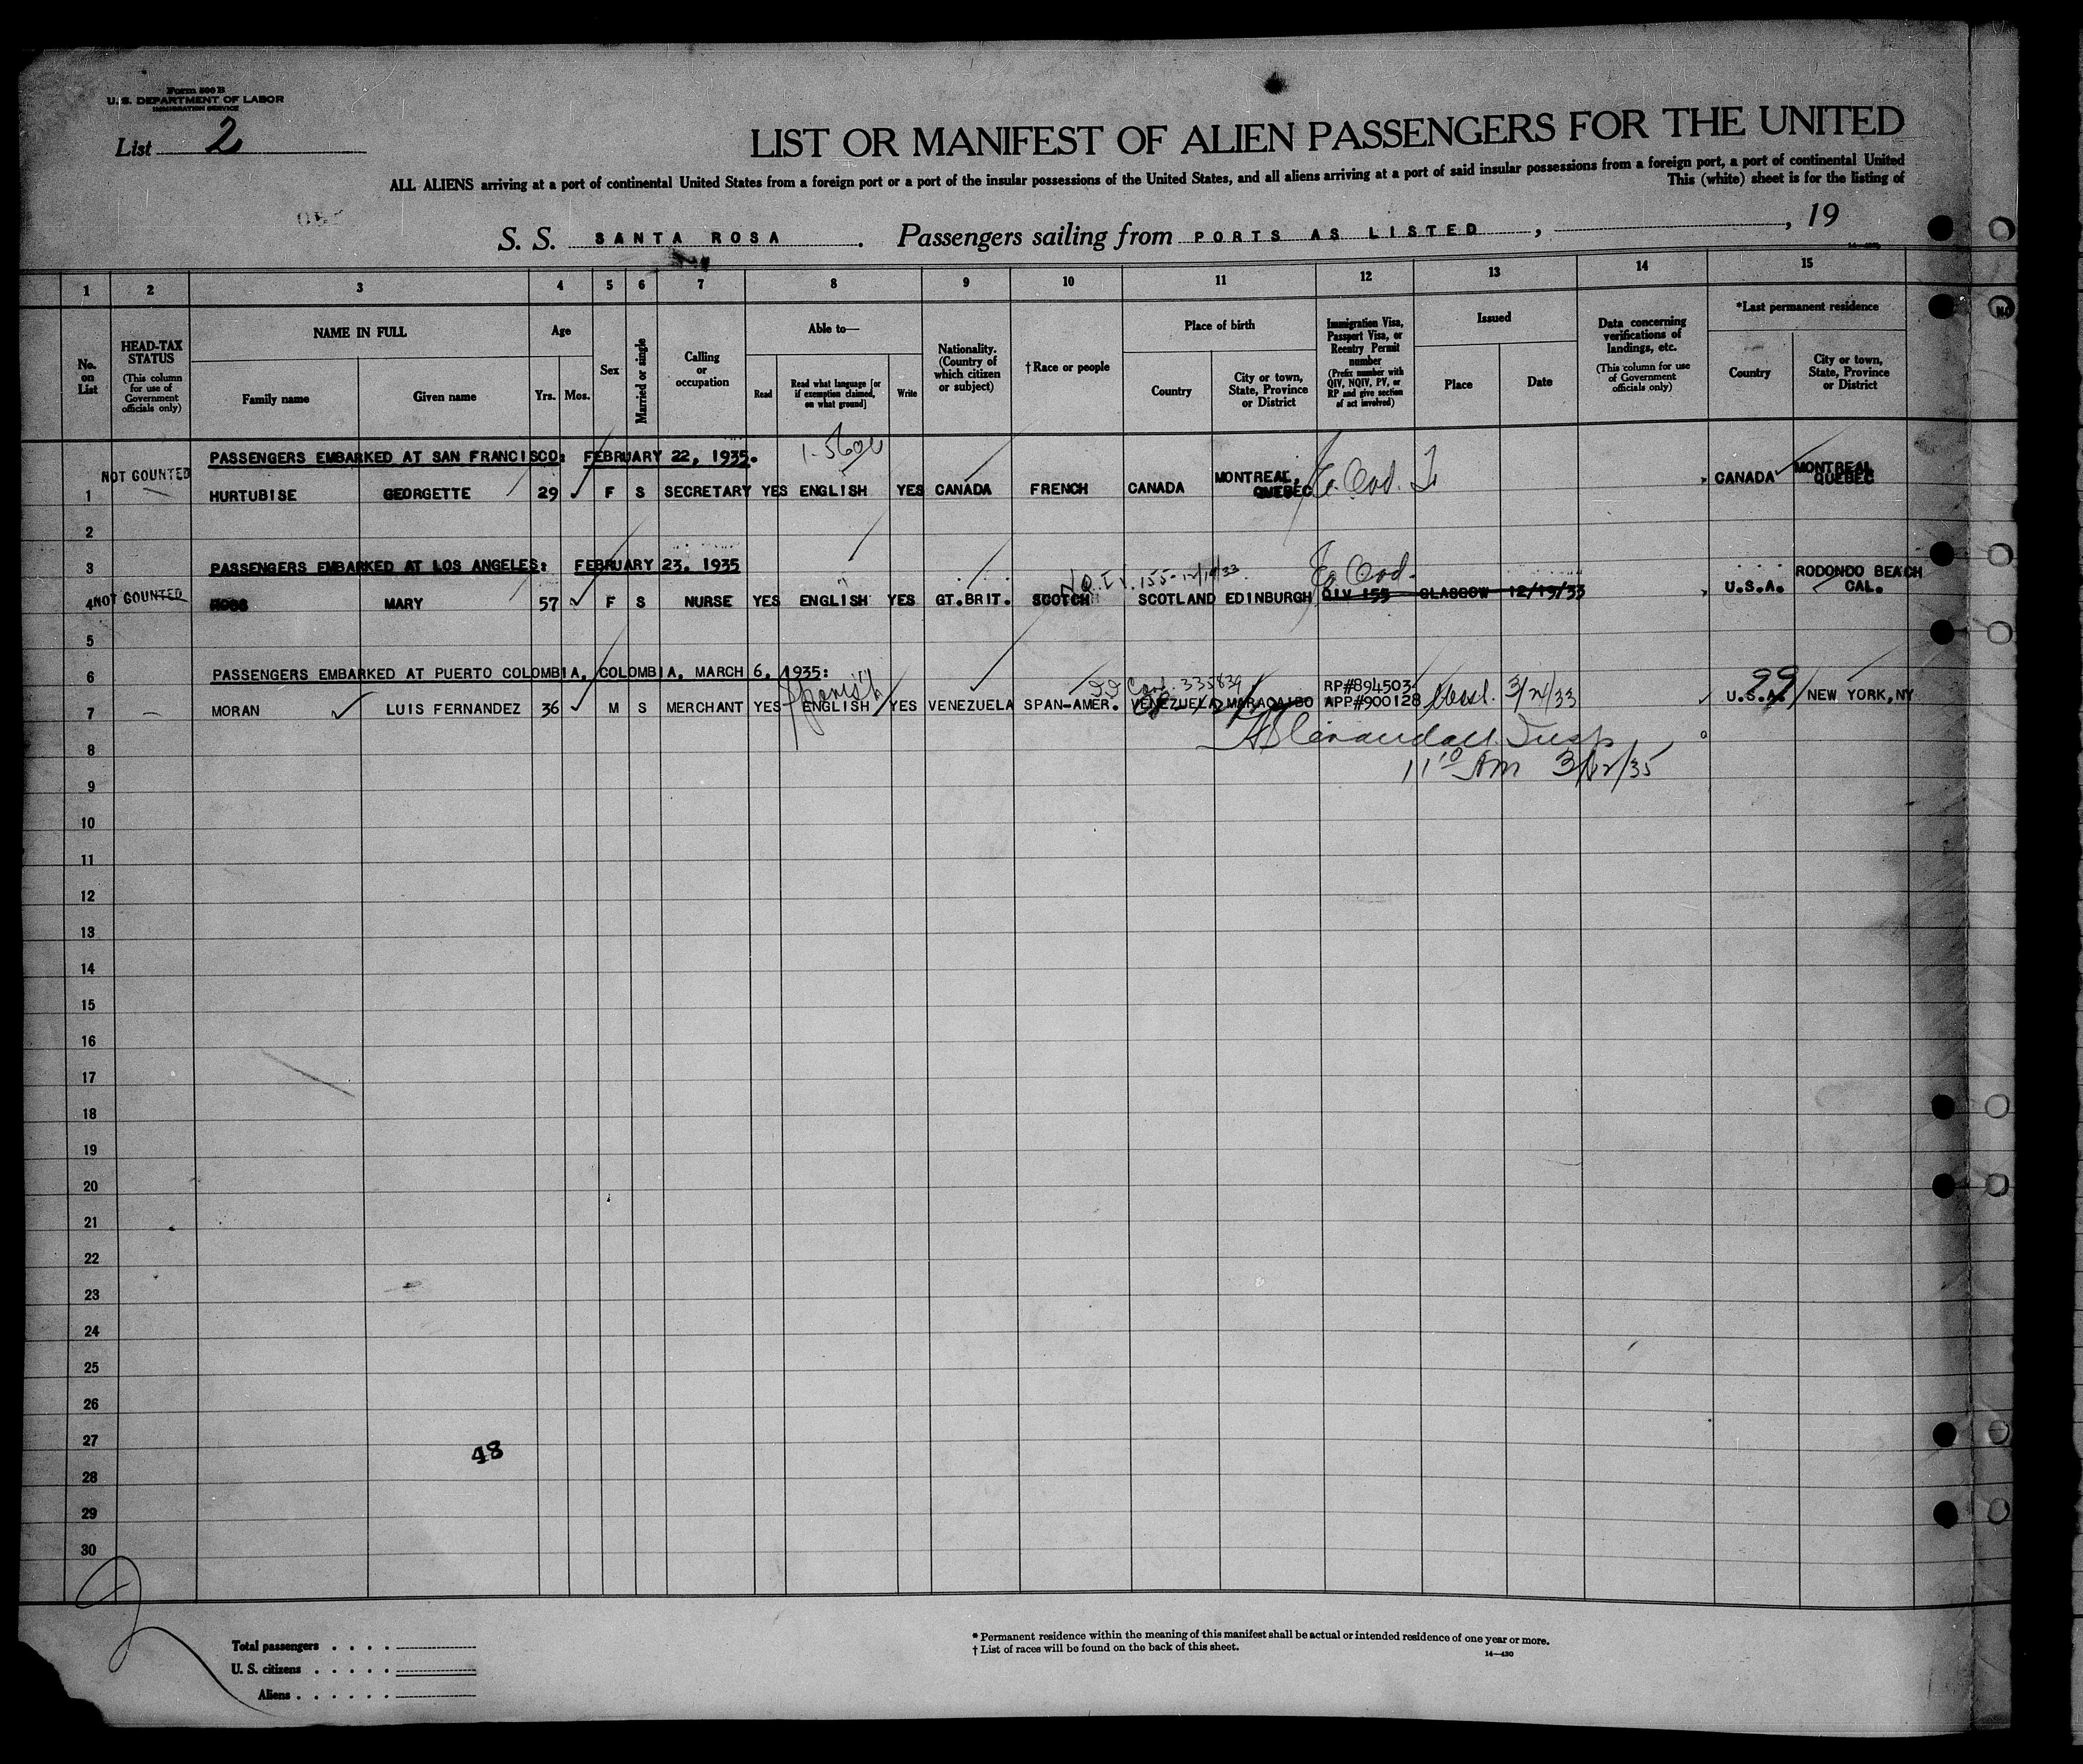 Form 500 B
U. S. DEPARTMENT OF LABOR
IMMIGRATION SERVICE
List 2
LIST OR MANIFEST OF ALIEN PASSENGERS FOR THE UNITED
ALL ALIENS arriving at a port of continental United States from a foreign port or a port of the insular possessions of the United States, and all aliens arriving at a port of said insular possessions from a foreign port, a port of continental United
This (white) sheet is for the listing of
S. S. SANTA ROSA . Passengers sailing from PORTS AS LISTED , , 19
1 2 3 4 5 6 7 8 9 10 11 12 13 14 15
No. on List
HEAD-TAX STATUS
(This column for use of Government officials only)
NAME IN FULL
Family name Given name
Age
Yrs. Mos.
Sex
Married or single
Calling or occupation
Able to—
Read Read what language [or if exemption claimed, on what ground] Write
Nationality. (Country of which citizen or subject)
†Race or people
Place of birth
Country City or town, State, Province or District
Immigration Visa, Passport Visa, or Reentry Permit number
(Prefix number with QIV, NQIV, PV, or RP and give section of act involved)
Issued
Place Date
Data concerning verifications of landings, etc.
(This column for use of Government officials only)
*Last permanent residence
Country City or town, State, Province or District
PASSENGERS EMBARKED AT SAN FRANCISCO: FEBRUARY 22, 1935.
NOT COUNTED
1 HURTUBISE GEORGETTE 29 F S SECRETARY YES ENGLISH YES CANADA FRENCH CANADA MONTREAL, QUEBEC CANADA MONTREAL QUEBEC
2
3 PASSENGERS EMBARKED AT LOS ANGELES: FEBRUARY 23, 1935
155-12/19/33
4 NOT COUNTED ROSS MARY 57 F S NURSE YES ENGLISH YES GT.BRIT. SCOTCH SCOTLAND EDINBURGH QIV 155 GLASGOW 12/19/33 U.S.A. RODONDO BEACH CAL.
5
6 PASSENGERS EMBARKED AT PUERTO COLOMBIA, COLOMBIA, MARCH 6, 1935:
Spanish Card 335839 99
7 MORAN LUIS FERNANDEZ 36 M S MERCHANT YES ENGLISH YES VENEZUELA SPAN-AMER. VENEZUELA MARACAIBO RP#894503 APP#900128 U.S.A. NEW YORK, NY
8
11 10 AM 3/12/35
9
10
11
12
13
14
15
16
17
18
19
20
21
22
23
24
25
26
27
48
28
29
30
Total passengers . . . .
U. S. citizens . . . . .
Aliens . . . . . .
* Permanent residence within the meaning of this manifest shall be actual or intended residence of one year or more.
† List of races will be found on the back of this sheet.
14—430